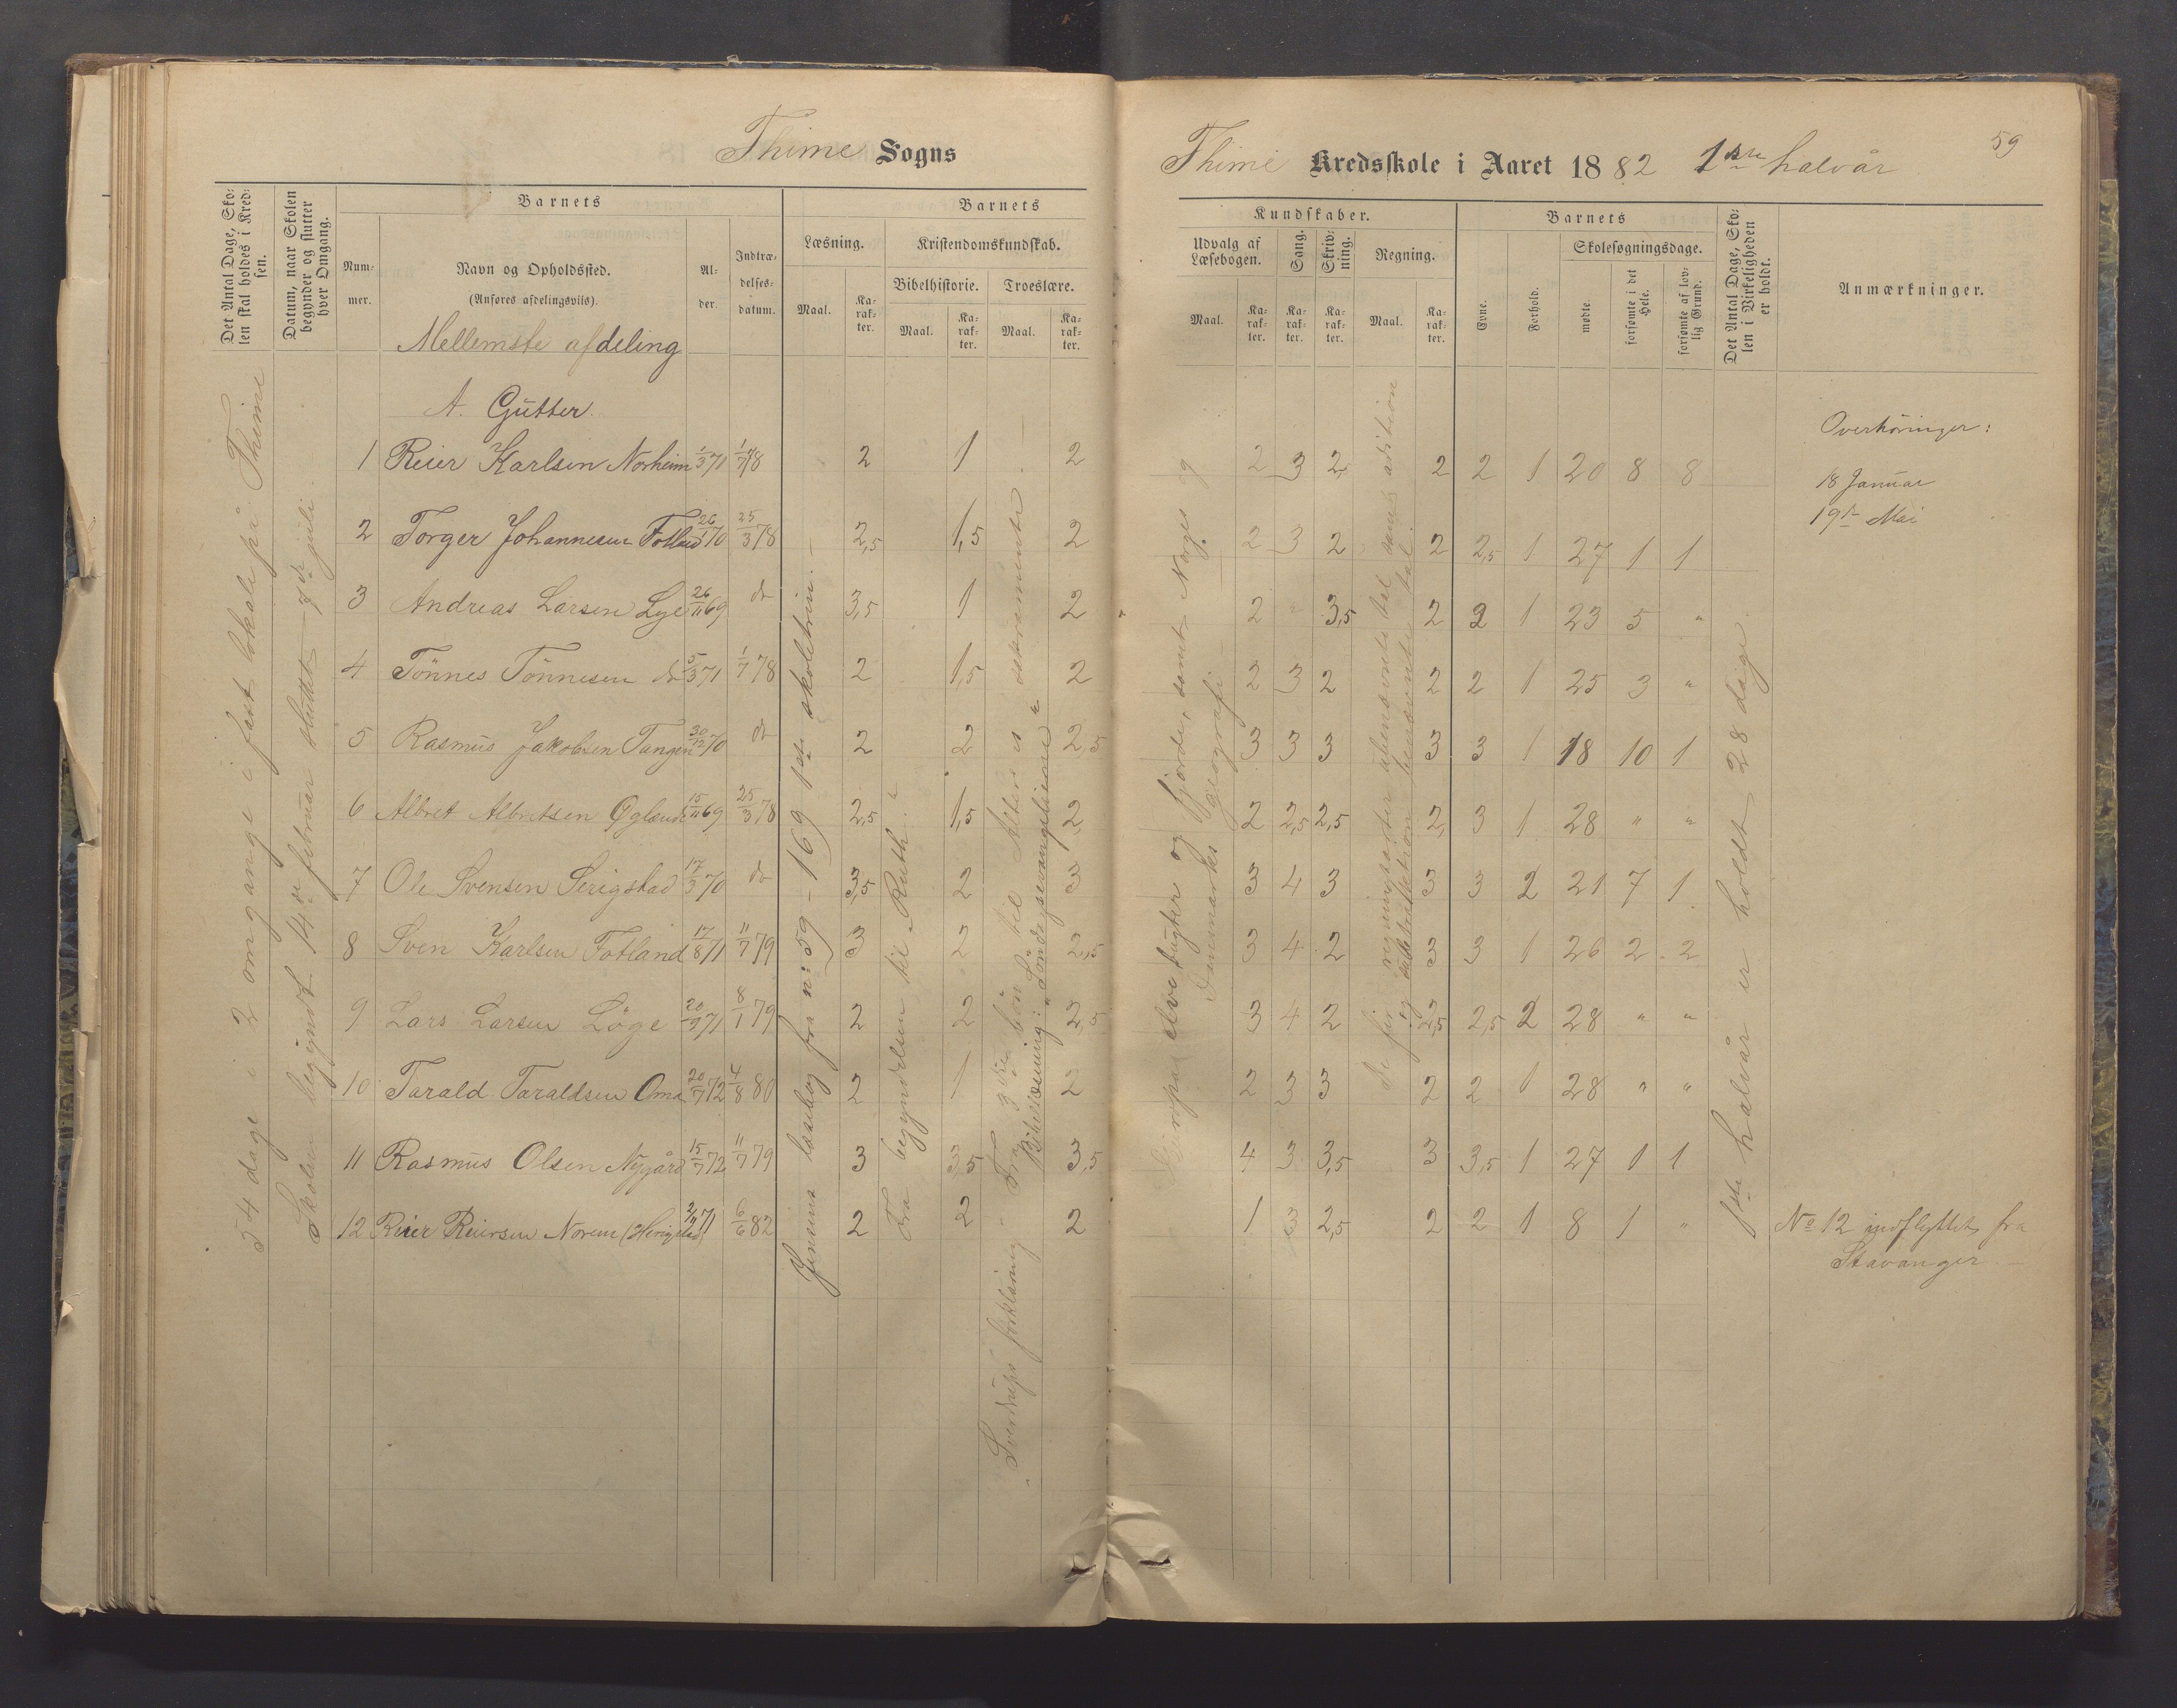 Thime Sogns
Det Antal Dage, Skolen skal holdes i Kredsen.
Datum, naar Skolen begynder og slutter hver Omgang.
Barnets
Nummer.
Navn og Opholdssted.
(Anføres afdelingsviis).
Alder.
Indtrædelsesdatum.
Barnets
Læsning.
Kristendomskundskab.
Bibelhistorie.
Troeslære.
Maal.
Karakter.
Maal.
Karakter.
Maal.
Karakter.
Mellemste afdeling
A. Gutter.
1 Reier Karlsen Norheim 1/3 70 1/7 78 2 1 2
2 Torger Johannesen Fotland 26/1 70 25/3 78 2,5 1,5 2
3 Andreas Larsen Lye 26/11 69 do 3,5 1 2
4 Tönnes Tönnesen do 5/3 71 1/7 78 2 1,5 2
5 Rasmus Jakobsen Tangen 30/12 70 do 2 2 2,5
6 Albret Albretsen Øglænd 15/11 69 25/3 78 2,5 1,5 2
7 Ole Svensen Serigstad 17/3 70 do 3,5 2 3
8 Sven Karlsen Fotland 17/8 71 11/7 79 3 2 2,5
9 Lars Larsen Löge 20/9 71 8/1 79 2 2 2,5
10 Tarald Taraldsen Oma 20/7 72 4/8 80 2 1 2
11 Rasmus Olsen Nygård 15/7 72 11/7 79 3 3,5 3,5
12 Reier Reiersen Norem (Herigstad) 71 6/6 82 2 2 2
54 dage i 2 omgange i fast lokale på Thime
Skolen begyndt 14de februar sluttet 7de juli.
Jensens læsebog fra n: 59 – 169 1ste skoletrin. –
Fra begyndelsen til „Ruth."
Sverdrups forklaring. Fra 3die bön til Alterets sakramente.
Bibellæsning: „Söndagsevangelierne"
Thime Kredsskole i Aaret 1882 1ste halvår
59
Kundskaber.
Udvalg af Læsebogen.
Sang.
Skrivning.
Regning.
Barnets
Evne.
Forhold.
Skolesøgningsdage.
mødte.
forsømte i det Hele.
forsømte af lovlig Grund.
Det Antal Dage, Skolen i Virkeligheden er holdt.
Anmærkninger.
Maal.
Karakter.
Karakter.
Karakter.
Maal.
Karakter.
2 3 2 2 2 1 20 8 8
2 3 2 2 2,5 1 27 1 1
2 " 3,5 2 2 1 23 5 "
2 3 2 2 2 1 25 3 "
3 3 3 3 3 1 18 10 1
2 2,5 2,5 2 3 1 28 " "
3 4 3 3 3 2 21 7 1
3 4 2 3 3 1 26 2 2
3 4 2 2,5 2,5 2 28 " "
2 3 3 2 2 1 28 " "
4 3 3,5 3 3,5 1 27 1 1
1 3 2,5 2 2 1 8 1 "
Europas elve, bugter og fjorde, samt Norges og
Danmarks geografi –
De fire regningsarter ubenævnte tal samt addition
og subtraktion benævnte tal
1ste halvår er holdt 28 dage.
Overhøringer:
18 Januar
19de Mai
No 12 indflyttet fra
Stavanger